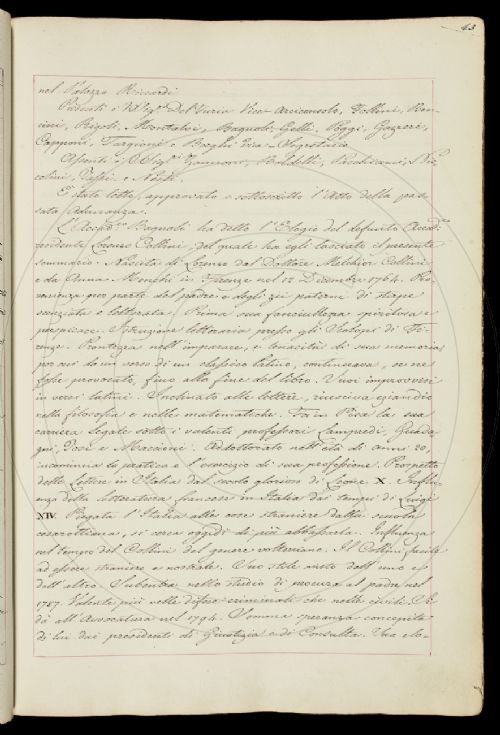 43
nel Palazzo Riccardi.
Presenti i Ss.ri Del Furia Vice Arciconsolo, Follini,
cini, Rigoli, Montalvi, Bagnoli, Gelli, Poggi, Gazzeri,
Capponi, Targioni e Borghi Vice-Segretario
Assenti i Zannoni, Baldelli, Nic-
colini, e Nesti.
È stato letto, approvato e sottoscritto l'Atto della pas-
sata Adunanza.
L'Accad.co Bagnoli ha detto l'Elogio del defunto Accad.co
residente Lorenzo Collini, del quale ha egli lasciato il presente
sommario. Nascita di Lorenzo dal Dottore Melchior Collini
e da Anna in Firenze nel 12 Dicembre 1764. Pro-
venienza per parte del padre e degli zii paterni di stirpe
scenziata e letterata. Prima sua fanciullezza spiritosa e
perspicace. Istruzione letteraria presso gli Scolopi di Fi-
renze. Prontezza nell'imparare, e tenacità di sua memoria
per cui da un verso di un classico latino, continuava, se ne
fosse provocato, fino alla fine del libro. Suoi improvvisi
in versi latini. Inclinato alle lettere, riusciva eziandio
nella filosofia e nelle matematiche. Fa in Pisa la sua
carriera legale sotto i valenti professori Lampredi, Guada-
gni, e Maccioni. Addottorato nell'età di anni 20,
incomincia la pratica e l'esercizio di sua professione. Prospetto
delle Lettere in Italia dal secolo glorioso di Leone X. Influ-
enza della letteratura francese in Italia dai tempi di Luigi
XIV. Piegata l'Italia alle cose straniere dalla scuola
cesarottiana, si cerca oggidì di più abbassarla. Influenza
nel tempo del Collini del genere volteriano. Il Collini facile
ad essere straniero e nostrale. Suo stile misto dell'uno e
dell'altro. Subentra nello studio di procura al padre nel
1787. Valente più nelle difese criminali che nelle civili. Si
dà all'Avvocatura nel 1794. Somma speranza concepita
di lui dai presidenti di Giustizia e di Consulta. Sua elo-